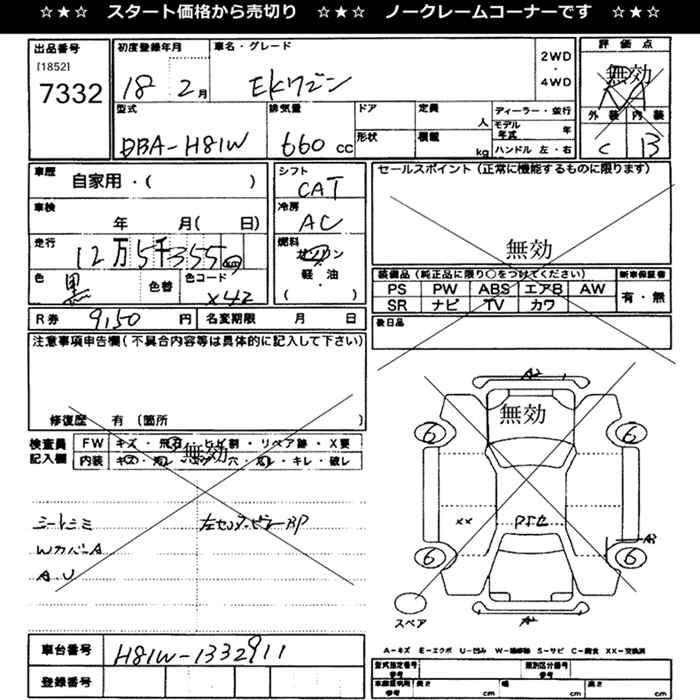 ☆★☆ スタート価格から売切り ☆★☆ ノークレームコーナーです ☆★☆
出品番号 初度登録年月 車名・グレード 評価点
[1852]
7332
18 2月 EKワゴン
2WD
・
4WD
無効
型式 排気量 ドア 定員 ディーラー・並行
外装 内装
人 モデル年式 年
DBA-H81W 660cc
形状 積載 kg ハンドル 左・右
C B
車歴 自家用・( )
シフト CAT
セールスポイント(正常に機能するものに限ります)
車検 年 月( 日)
冷房 AC
走行 12万5千355km
燃料 ガソリン・軽油・( )
無効
色 黒 色替 色コード X42
装備品(純正品に限り○をつけてください) 新車保証書
PS PW ABS エアB AW 有・無
SR ナビ TV カワ
R券 9,150 円 名変期限 月 日
後日品
注意事項申告欄(不具合内容等は具体的に記入して下さい)
A2
無効
修復歴 有(箇所 )
検査員記入欄 FW キズ・飛石・ヒビ割・リペア跡・X要
内装 キズ・汚レ・ ・穴・ ・キレ・破レ
無効
6 6
シートシミ
WカバーA
A.U
XX
6 6
スペア
車台番号 H81W-1332911
A−キズ E−エクボ U−凹み W−補修跡 S−サビ C−腐食 XX−交換済
登録番号
型式指定番号 参考 類別区分番号 参考
車庫証明用 参考 長さ cm 幅 cm 高さ cm